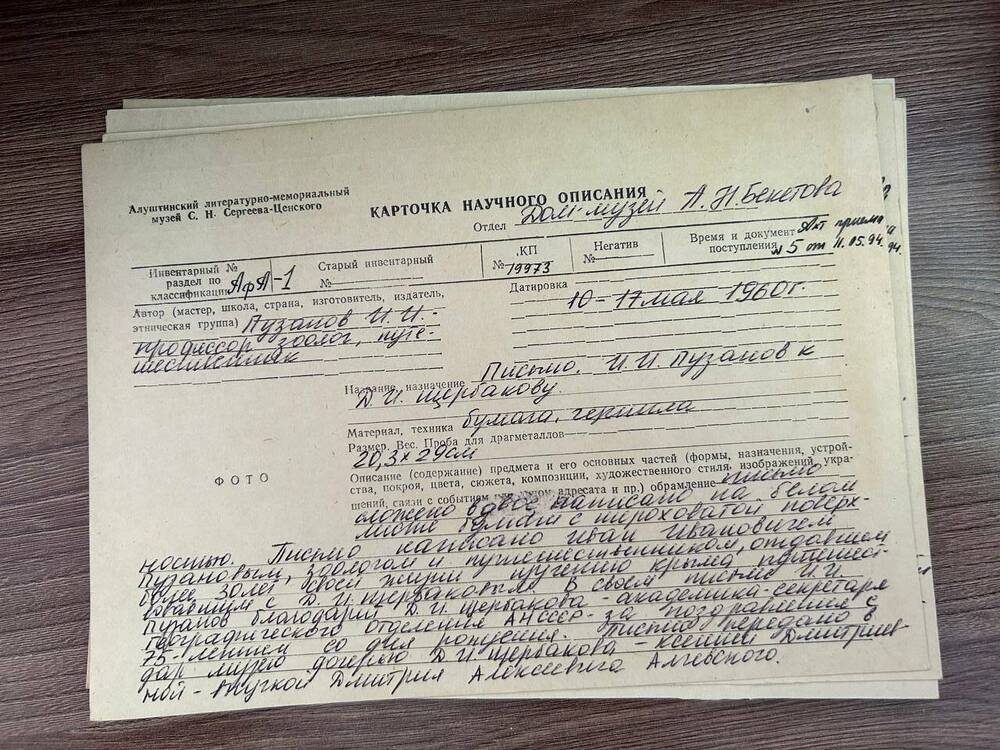 Алуштинский литературно-мемориальный
музей С. Н. Сергеева-Ценского
КАРТОЧКА НАУЧНОГО ОПИСАНИЯ
Отдел Дом-музей А.Н.Бекетова
Инвентарный №
раздел по
классификации АфА-1
Старый инвентарный
№
КП
№ 19973
Негатив
№
Время и документ Акт приема
поступления №5 от 11.05.94.
Автор (мастер, школа, страна, изготовитель, издатель,
этническая группа) Пузанов И.И.-
профессор зоолог, путе-
шественник
Датировка
10-17 мая 1960г.
Название, назначение Письмо. И.И. Пузанов к
Д.И. Щербакову.
Материал, техника бумага, чернила
Размер. Вес. Проба для драгметаллов
20,3×29см
ФОТО
Описание (содержание) предмета и его основных частей (формы, назначения, устрой-
ства, покроя, цвета, сюжета, композиции, художественного стиля, изображений, укра-
шений, связи с событием адресата и пр.) обрамление письмо
сложено вдвое написано на белом
листе бумаги с шероховатой поверх-
ностью. Письмо написано Иван Ивановичем
Пузановым, зоологом и путешественником, отдавшем
более 30 лет своей жизни изучению Крыма, путешест-
вовавшим с Д.И. Щербаковым. В своем письме И.И.
Пузанов благодарит Д.И. Щербакова - академика-секретаря
географического отделения АНСССР - за поздравления с
75-летием со дня рождения. Письмо передано в
дар музею дочерью Д.И. Щербакова - Ксенией Дмитриев-
ной - внучкой Дмитрия Алексеевича Алчевского.